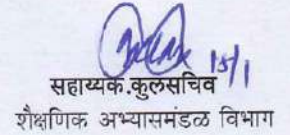 15/1
सहाय्यक.कुलसचिव
शैक्षणिक अभ्यासमंडळ विभाग